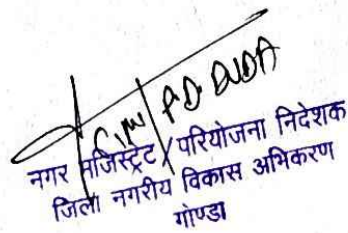 CM/PD DUDA
नगर मजिस्ट्रेट/परियोजना निदेशक
जिला नगरीय विकास अभिकरण
गोण्डा